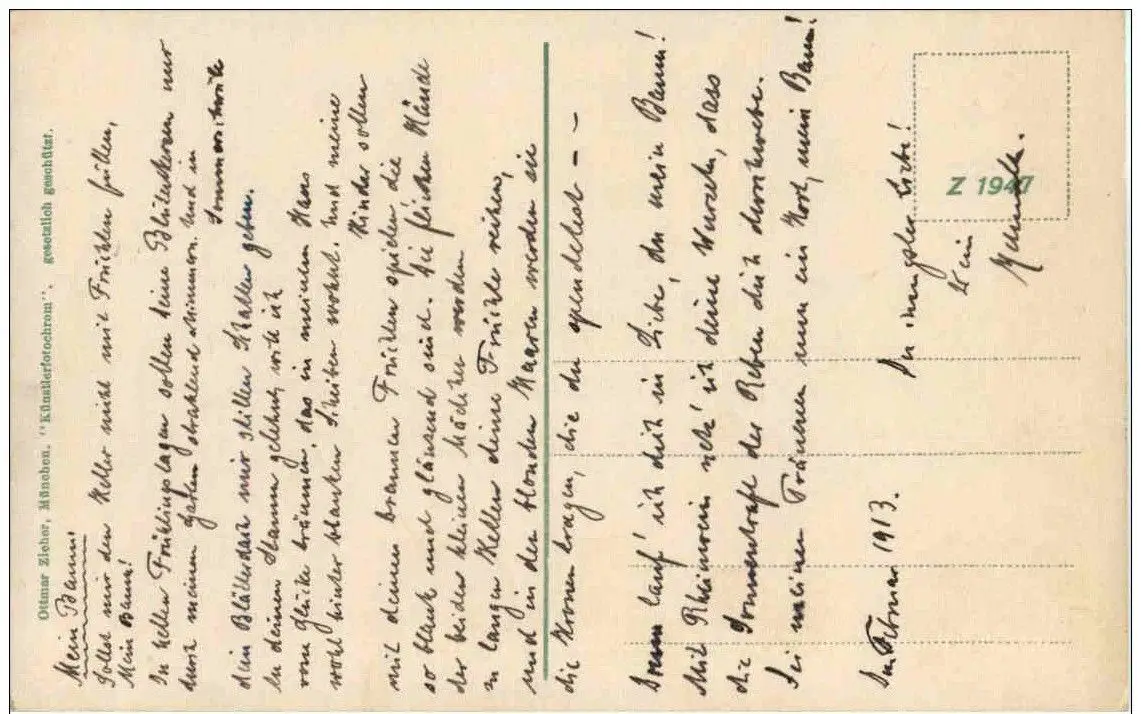 Ottmar Zieher, München. "Künstlerfotochrom", gesetzlich geschützt.
Mein Baum:
Sollst mir den Keller nicht mit Früchten füllen,
Mein Baum!
In hellen Frühlingstagen sollen deine Blütenkerzen nur
durch meinen Garten strahlend schimmern. Und in
Sommerschwüle
dein Blätterdach mir stillen Schatten geben.
An deinen Stamm gelehnt, will ich
vom Glücke träumen, das in meinem Haus
wohl hinter blanken Scheiben wohnt. Und meine
Kinder sollen
mit deinen braunen Früchten spielen, die
so blank und glänzend sind. Die flinken Hände
der beiden kleinen Mädchen werden
zu langen Ketten deine Früchte reihen,
und in den blonden Haaren werden sie
die Kronen tragen, die du spendetest – –
Drum tauf' ich dich in Liebe, du mein Baum!
Mit Rheinwein netz' ich deine Wurzeln, dass
die Sonnenkraft der Reben dich durchwebe.
Sei meinen Träumen nun ein Hort, mein Baum!
Im Februar 1913.
In inniger Liebe!
Dein
Z 1947